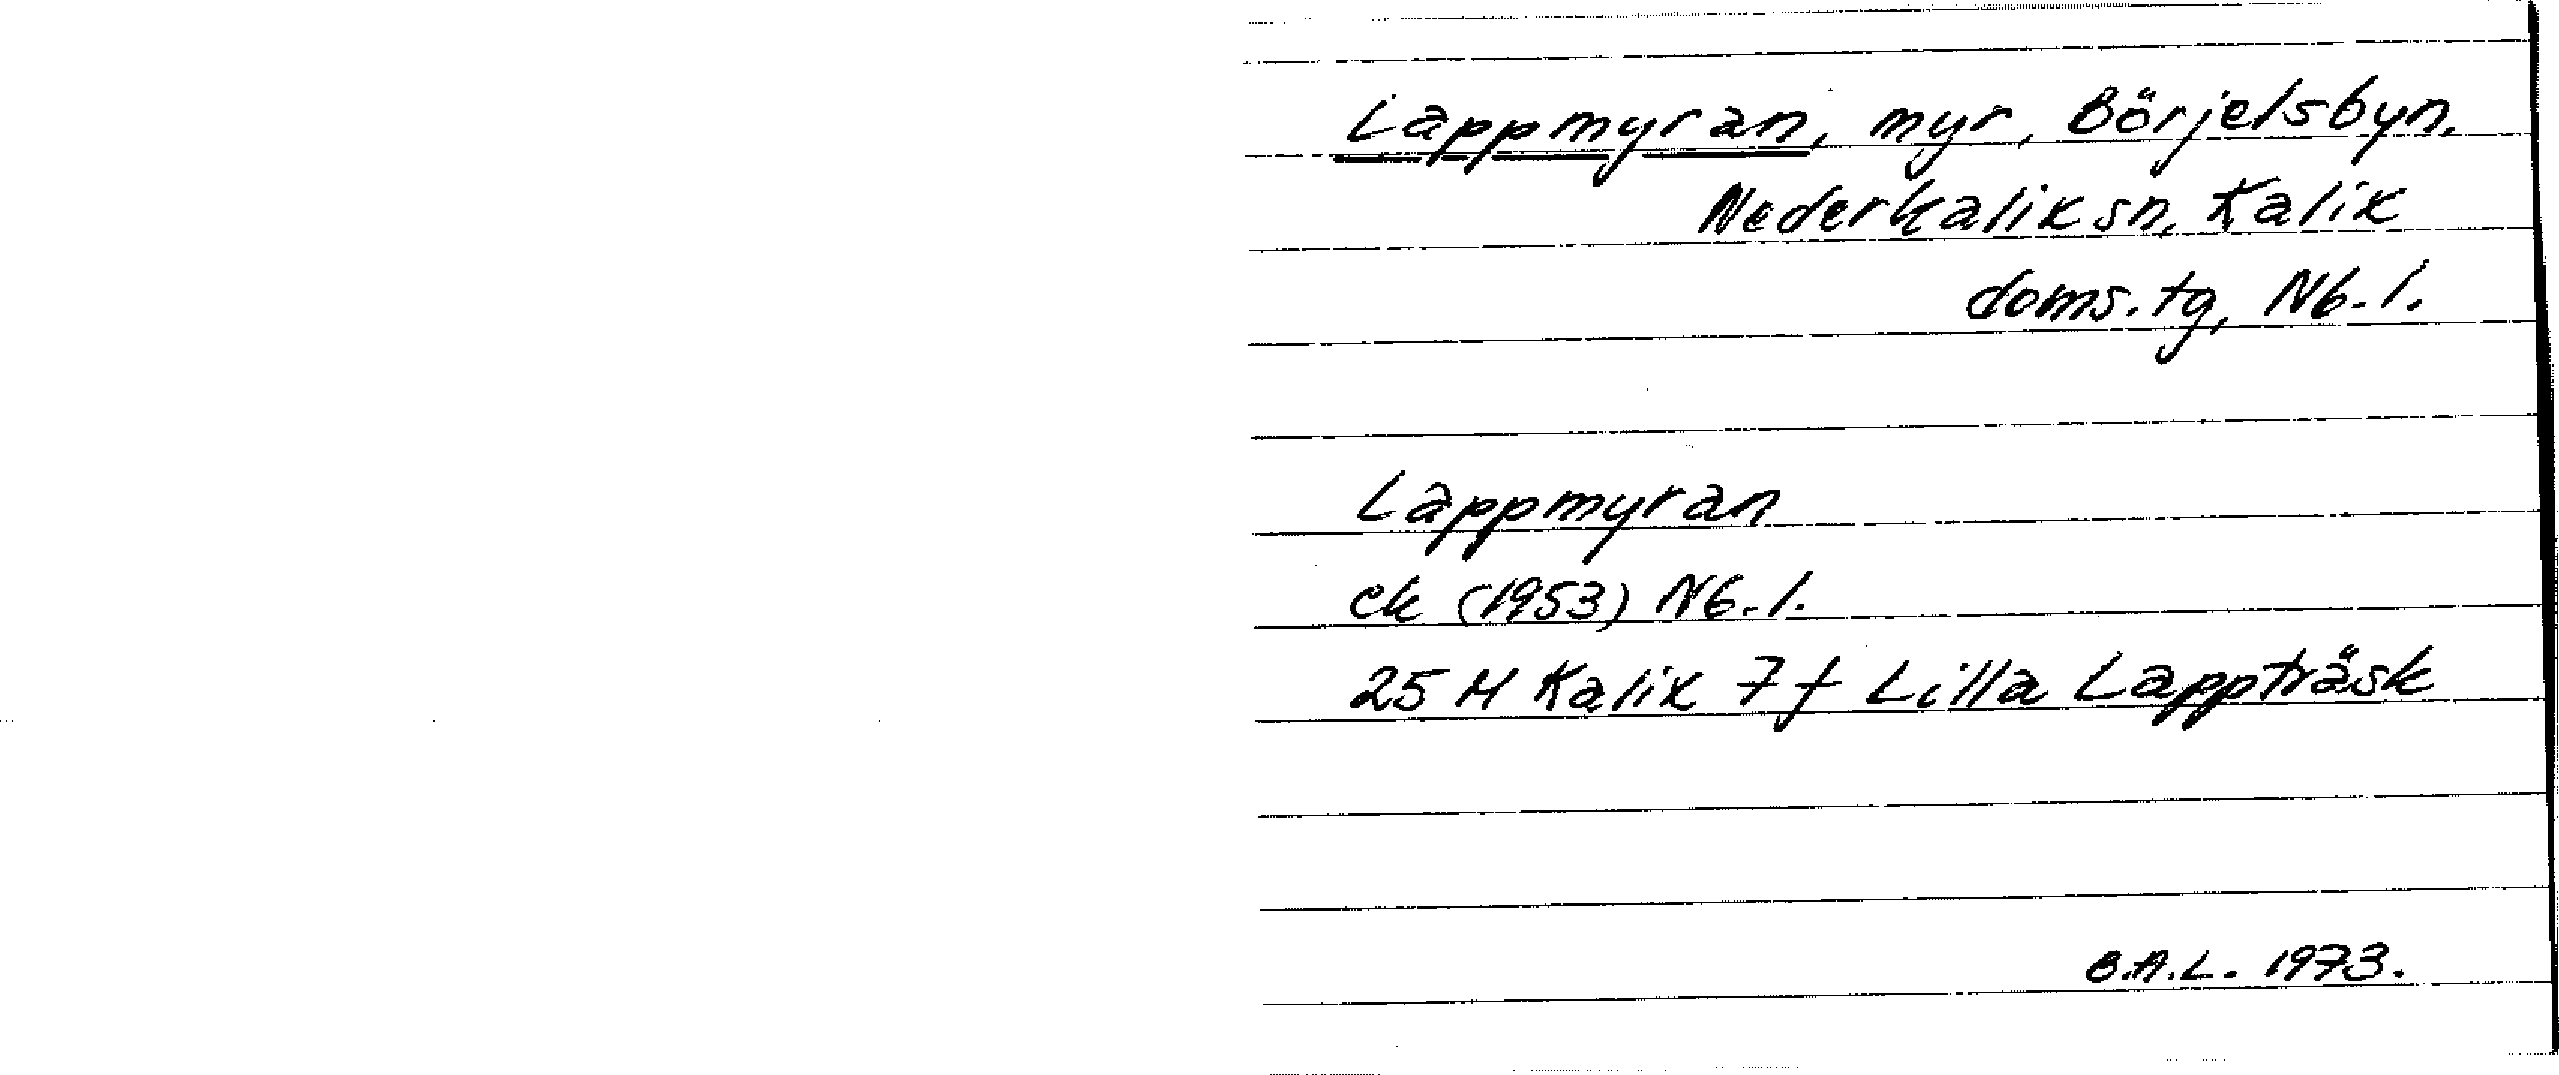 Lappmyran, myr, Börjelsbyn,
Nederkalix sn, Kalix
doms.tg, Nb. l.
Lappmyran
ek (1953) Nb. l.
25 M Kalix 7 f Lilla Lappträsk
B.A.L. 1973.